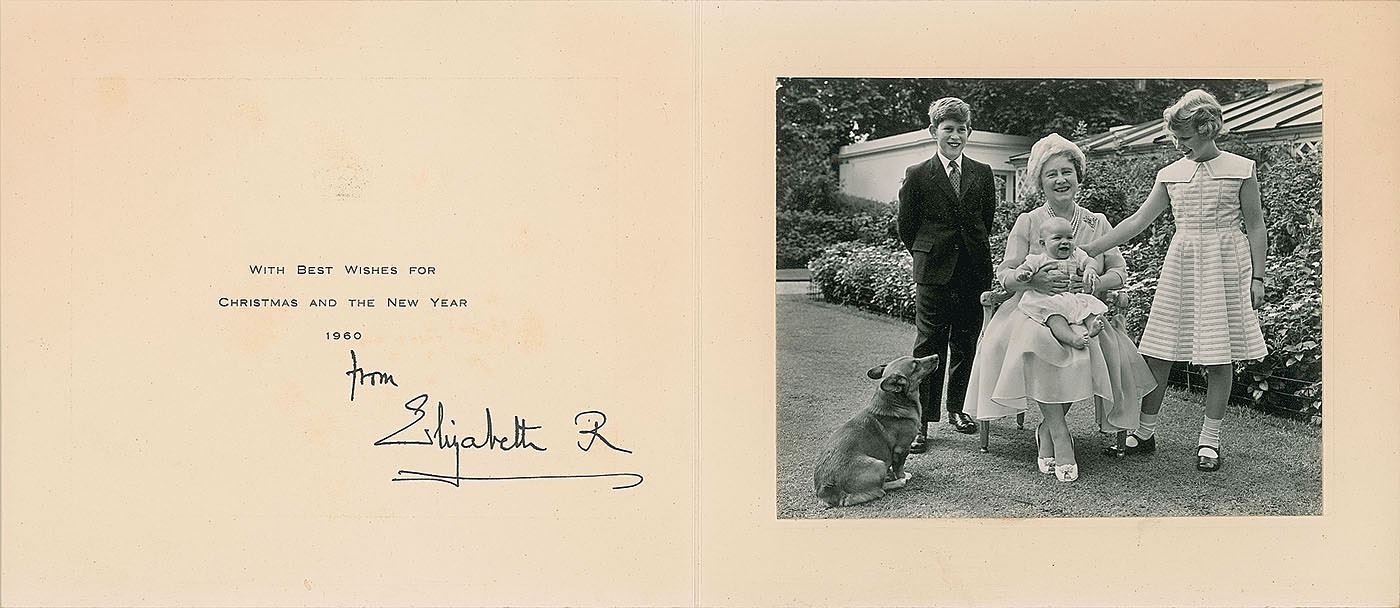 With Best Wishes for
Christmas and the New Year
1960
from
Elizabeth R